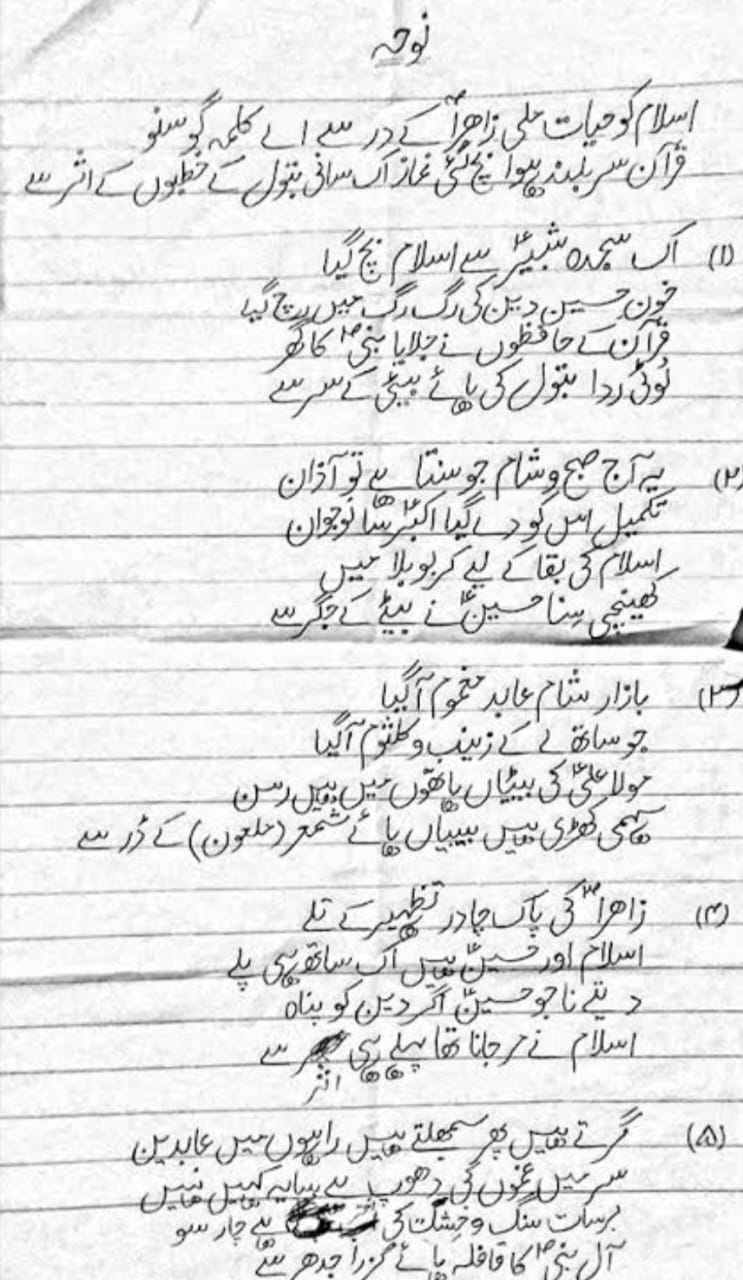 نوحہ
اسلام کو حیات ملی زاھراؑ کے در سے اے کلمہ گو سنو
قرآن سر بلند ہوا بچ گئی نماز اک سانی بتول کے خطبوں کے اثر سے
(۱) اک سجدہ شبیرؑ سے اسلام بچ گیا
خون حسین دین کی رگ رگ میں رچ گیا
قرآن کے حافظوں نے جلایا نبیؐ کا گھر
لوٹی ردا بتول کی ہائے بیٹی کے سر سے
(۲) یہ آج صبح و شام جو سنتا ہے تو آذان
تکمیل اس کو دے گیا اکبرؑ سا نوجوان
اسلام کی بقا کے لیے کربوبلا میں
کھینچی سِنا حسینؑ نے بیٹے کے جگر سے
(۳) بازار شام عابد مغموم آ گیا
جو ساتھ لے کے زینب و کلثوم آ گیا
مولا علیؑ کی بیٹیاں ہاتھوں میں ہیں رسن
سہمی کھڑی ہیں بیبیاں ہائے شمعر (ملعون) کے ڈر سے
(۴) زاھراؑ کی پاک چادر تطہیر کے تلے
اسلام اور حسینؑ ہیں اک ساتھ ہی پلے
دیتے نا جو حسینؑ اگر دین کو پناہ
اسلام نے مر جانا تھا پہلے ہی سے
اثر
(۵) گرتے ہیں پھر سمھلتے ہیں راہوں میں عابدین
سر میں غموں کی دھوپ ہے سایہ کہیں نہیں
برسات سنگ و خشت کی ہے چار سو
آل نبیؐ کا قافلہ ہائے گزرا جدھر سے